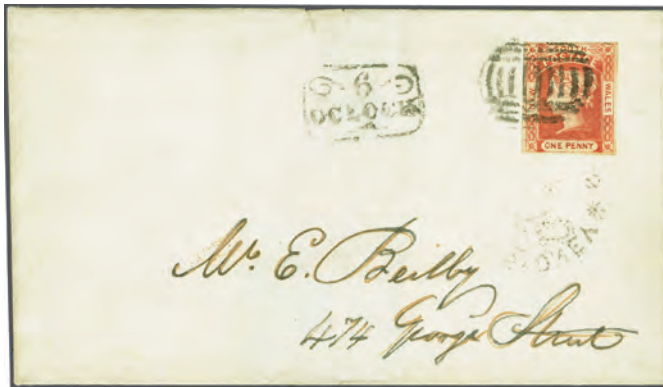 6
OCLOCK
SOUTH
WALES
ONE PENNY
Mr. E. Beilby
474 George Street